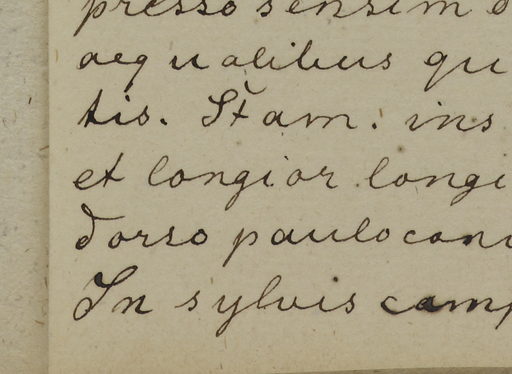 presso sensim
aequalibus qu
tis. Stam. ins
et longior longi
dorso paulo conv
In sylvis camp